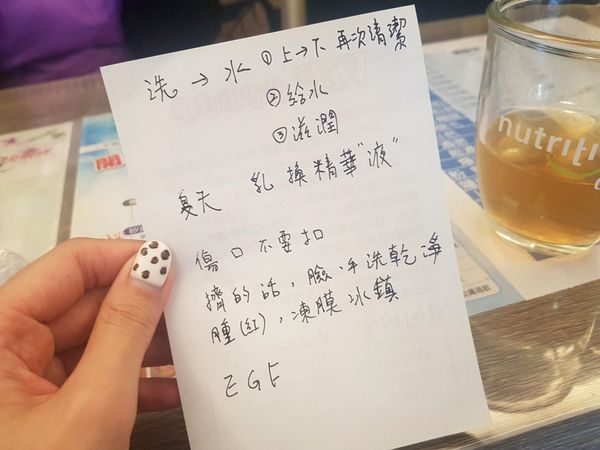 洗 → 水 ①上→下 再次清潔
②給水
③滋潤
夏天 乳換精華"液"
傷口不要扣
擠的話，臉、手洗乾淨
腫(紅)，凍膜冰鎮
EGF
nutriti